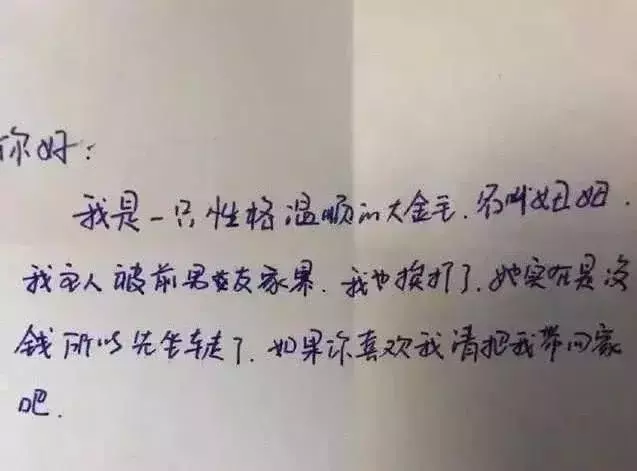 你好:
我是一只性格温顺的大金毛.名叫妞妞.
我主人被前男友家暴.我也挨打了.她实在是没
钱所以先走了.如果你喜欢我请把我带回家
吧.